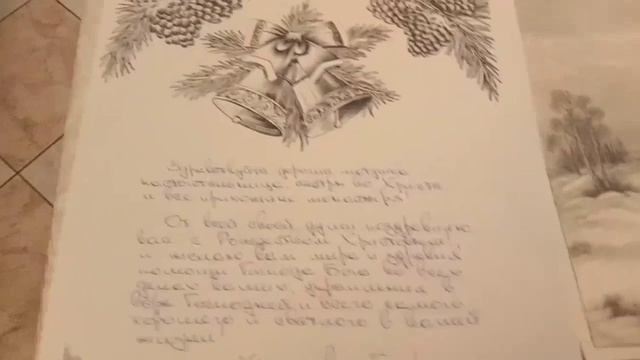 Здравствуйте дорогая матушка
настоятельница, сестры во Христе
и все прихожане монастыря!
От всей своей души поздравляю
вас с Рождеством Христовым,
и желаю вам мира и здоровья
помощи Господа Бога во всех
делах ваших, укрепления в
вере Господней и всего самого
хорошего и светлого в вашей
жизни